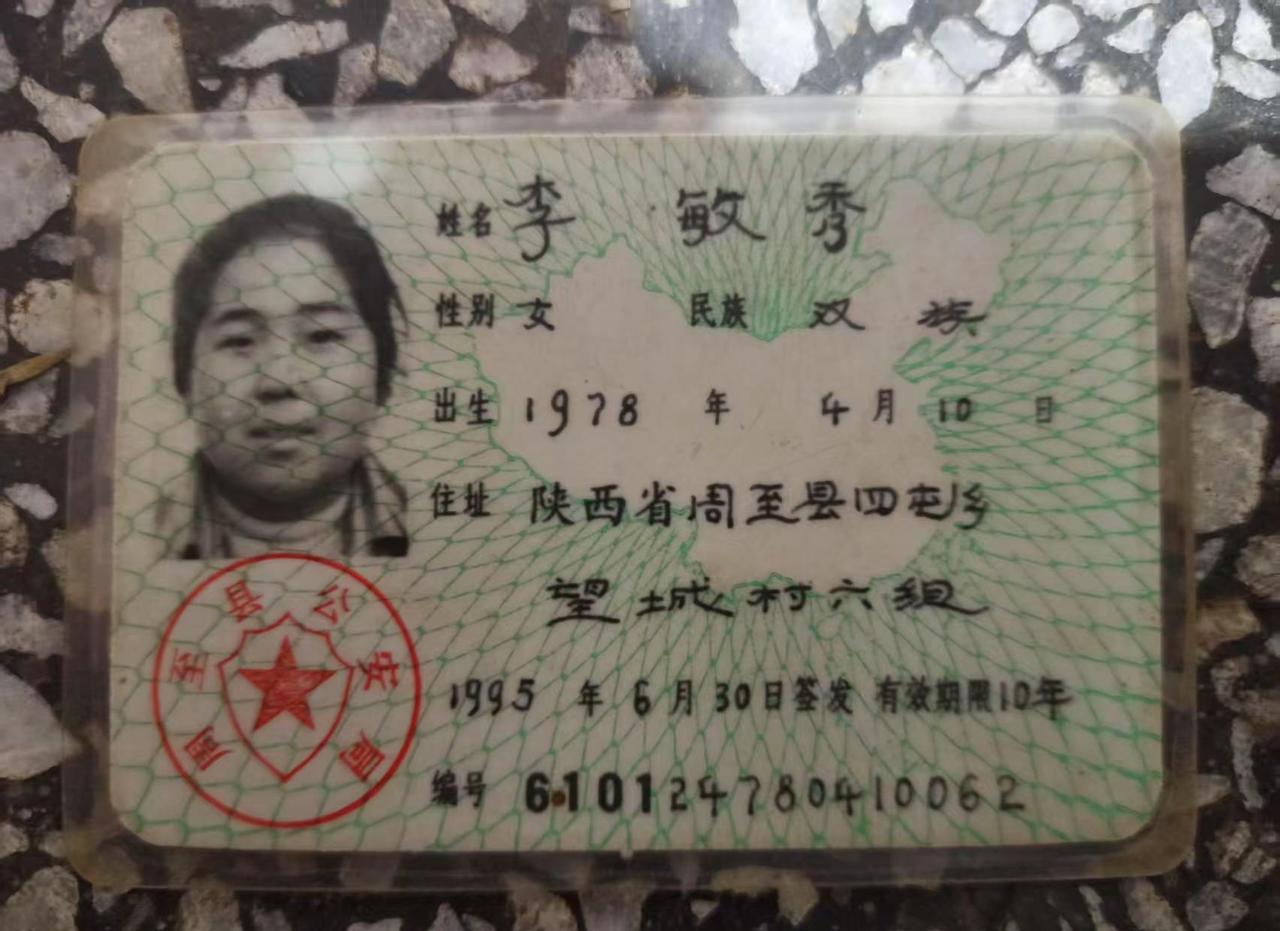 姓名 李敏秀
性别 女 民族 汉族
出生 1978 年 4 月 10 日
住址 陕西省周至县四屯乡
望城村六组
1995 年 6 月 30 日签发 有效期限10年
编号 610124780410062
周至县公安局